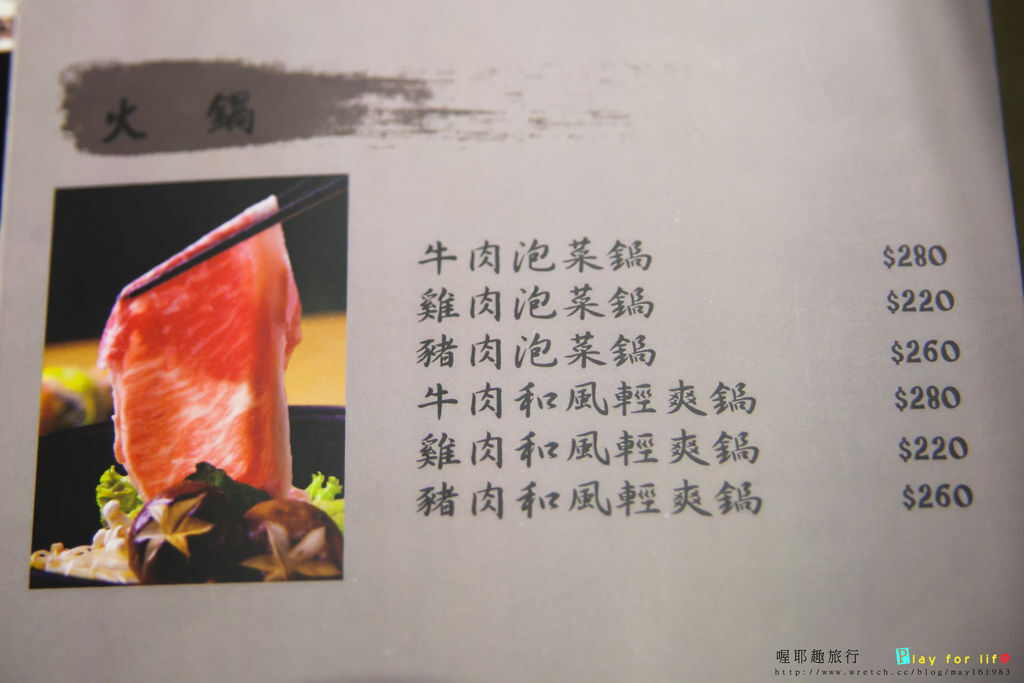 火鍋
牛肉泡菜鍋 $280
雞肉泡菜鍋 $220
豬肉泡菜鍋 $260
牛肉和風輕爽鍋 $280
雞肉和風輕爽鍋 $220
豬肉和風輕爽鍋 $260
喔耶趣旅行 Play for life
http://www.wretch.cc/blog/may161983